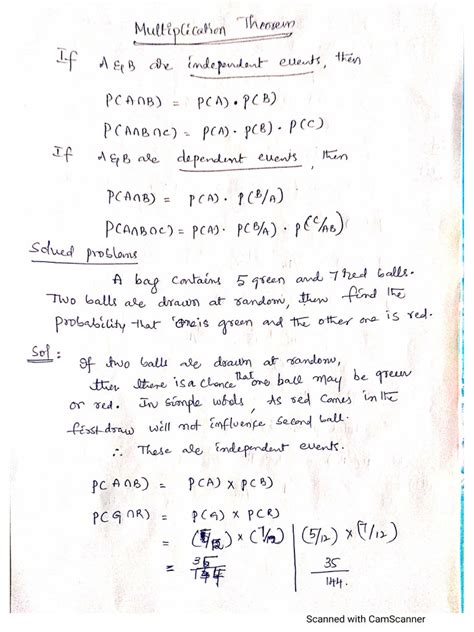 Multiplication Theorem
If A & B are independent events, then
P(A∩B) = P(A) . P(B)
P(A∩B∩C) = P(A) . P(B) . P(C)
If A & B are dependent events, then
P(A∩B) = P(A) . P(B/A)
P(A∩B∩C) = P(A) . P(B/A) . P(C/AB)
Solved problems
A bag contains 5 green and 7 red balls.
Two balls are drawn at random, then find the
probability that one is green and the other one is red.
Sol : If two balls are drawn at random,
then there is a chance that one ball may be green
or red. In simple words, As red comes in the
first draw will not influence second ball.
∴ These are independent events.
P(A∩B) = P(A) x P(B)
P(G∩R) = P(G) x P(R)
= (5/12) x (7/12) | (5/12) x (7/12)
= 35/144 | 35/144.
Scanned with CamScanner